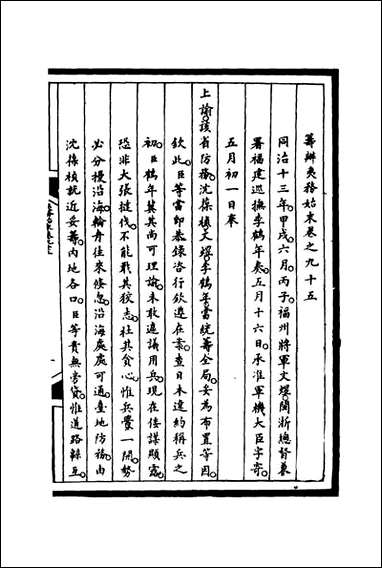 籌辦夷務始末卷之九十五
同治十三年甲戌六月丙子福州將軍文煜閩浙總督兼
署福建巡撫李鶴年奏五月十六日承准軍機大臣字寄
五月初一日奉
上諭該省防務沈葆楨文煜李鶴年當統籌全局妥為布置等因
欽此臣等當即恭錄咨行欽遵在案查日未違約稱兵之
初臣鶴年冀其尚可理諭未敢遽議用兵現在倭謀顯露
恐非大張撻伐不能戢其狡志杜其貪心惟兵釁一開勢
必分擾沿海輪舟往來倏忽沿海處處可通臺地防務由
沈葆楨就近妥籌內地各口臣等責無旁貸惟道路綿亙